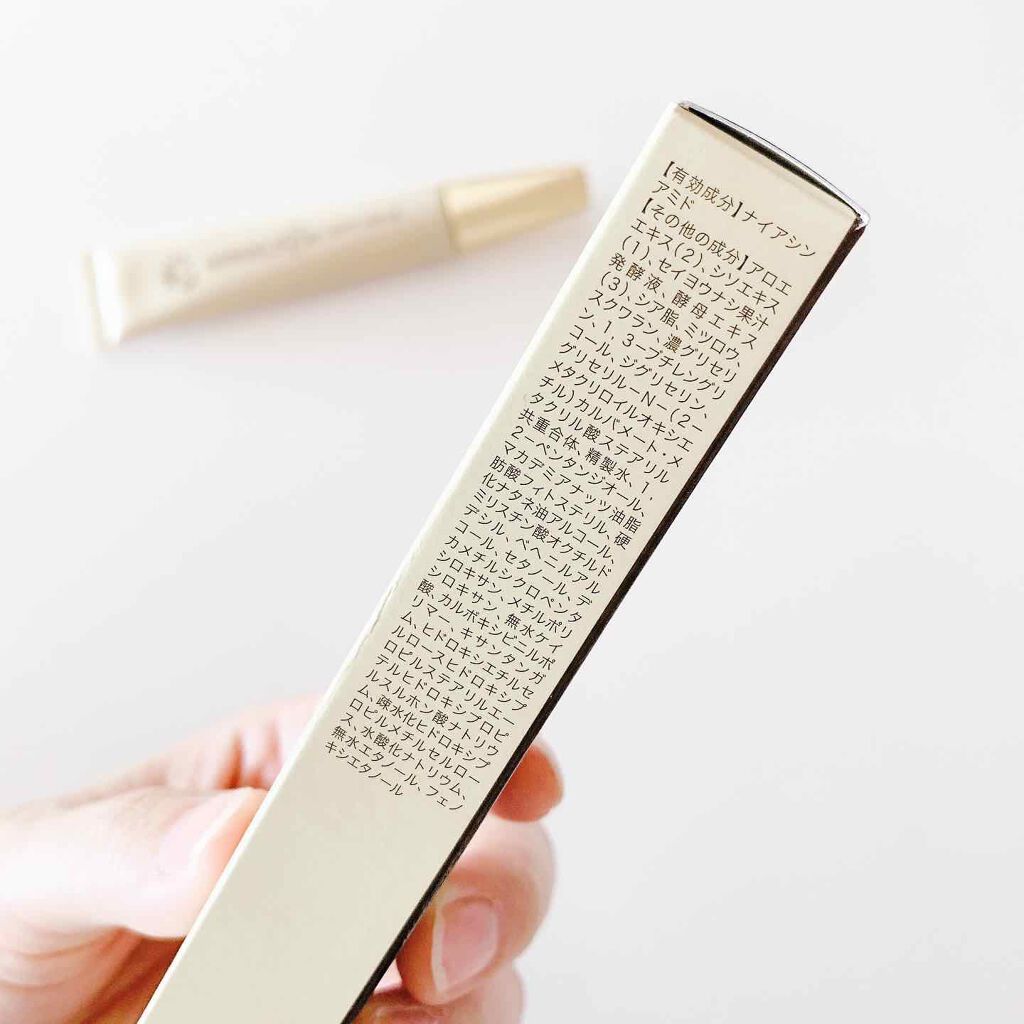 【有効成分】ナイアシン
アミド
【その他の成分】アロエ
エキス(2)、シソエキス
(1)、セイヨウナシ果汁
発酵液、酵母エキス
(3)、シア脂、ミツロウ、
スクワラン、濃グリセリ
ン、1,3−ブチレングリ
コール、ジグリセリン、
グリセリル−N−(2−
メタクリロイルオキシエ
チル)カルバメート・メ
タクリル酸ステアリル
共重合体、精製水、1,
2−ペンタンジオール、
マカデミアナッツ油脂
肪酸フィトステリル、硬
化ナタネ油アルコール、
ミリスチン酸オクチルド
デシル、ベヘニルアル
コール、セタノール、デ
カメチルシクロペンタ
シロキサン、メチルポリ
シロキサン、無水ケイ
酸、カルボキシビニルポ
リマー、キサンタンガ
ム、ヒドロキシエチルセ
ルロースヒドロキシプ
ロピルステアリルエー
テルヒドロキシプロピ
ルスルホン酸ナトリウ
ム、疎水化ヒドロキシプ
ロピルメチルセルロー
ス、水酸化ナトリウム、
無水エタノール、フェノ
キシエタノール